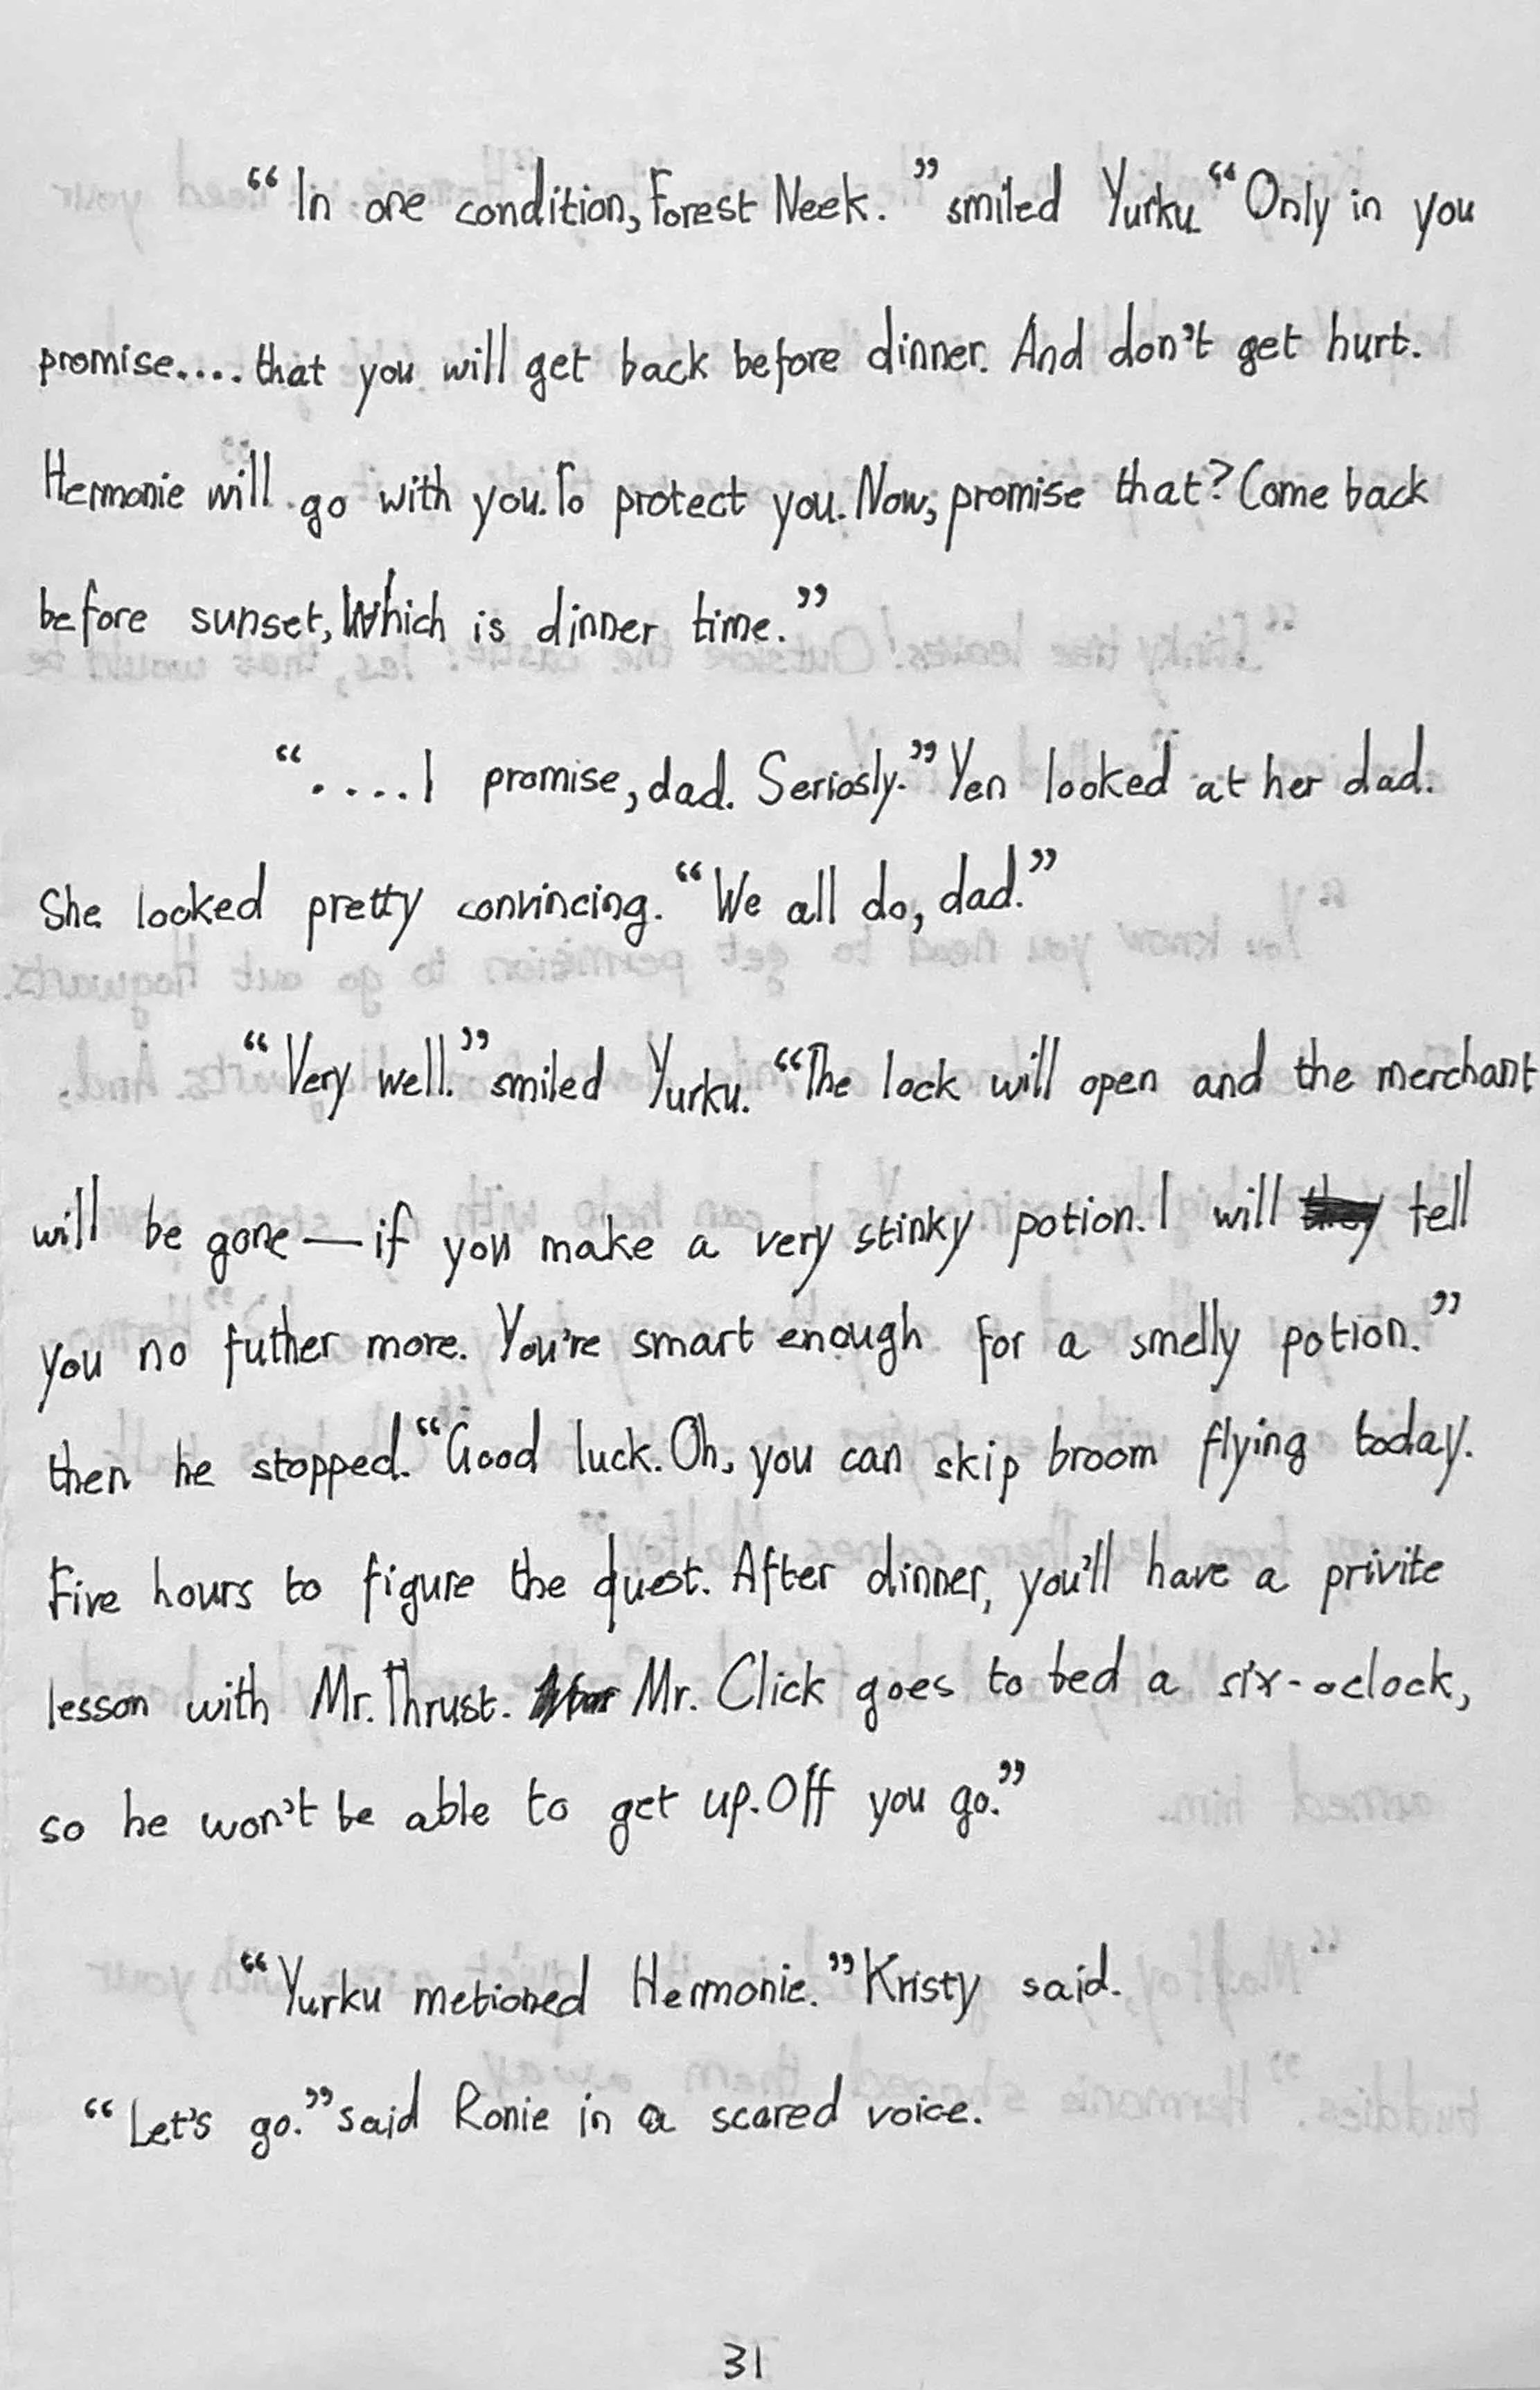 “In one condition, Forest Neek.” smiled Yurku. “Only in you
promise.... that you will get back before dinner. And don't get hurt.
Hermonie will go with you. To protect you. Now, promise that? Come back
before sunset, Which is dinner time.”
“.....I promise, dad. Seriosly.” Yen looked at her dad.
She looked pretty convincing. “We all do, dad.”
“Very well.” smiled Yurku. “The lock will open and the merchant
will be gone — if you make a very stinky potion. I will tell
you no futher more. You're smart enough for a smelly potion.”
then he stopped. “Good luck. Oh, you can skip broom flying today.
Five hours to figure the quest. After dinner, you'll have a privite
lesson with Mr. Thrust. Mr. Click goes to bed a six-oclock,
so he won't be able to get up. Off you go.”
“Yurku metioned Hermonie.” Kristy said.
“Let's go.” said Ronie in a scared voice.
31